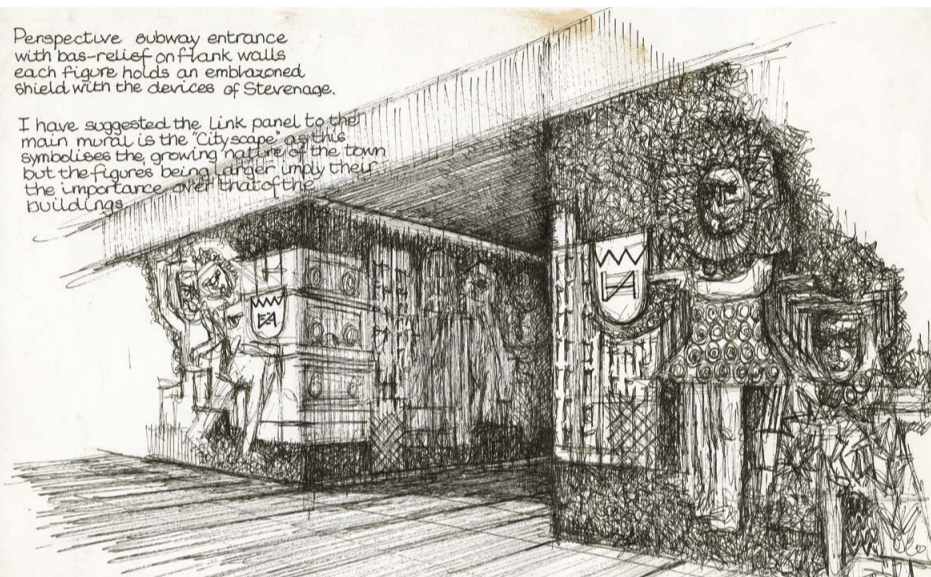 Perspective subway entrance
with bas-relief on flank walls
each figure holds an emblazoned
shield with the devices of Stevenage.
I have suggested the Link panel to the
main mural is the "Cityscape" as this
symbolises the growing nature of the town
but the figures being larger imply they
the importance over that of the
buildings